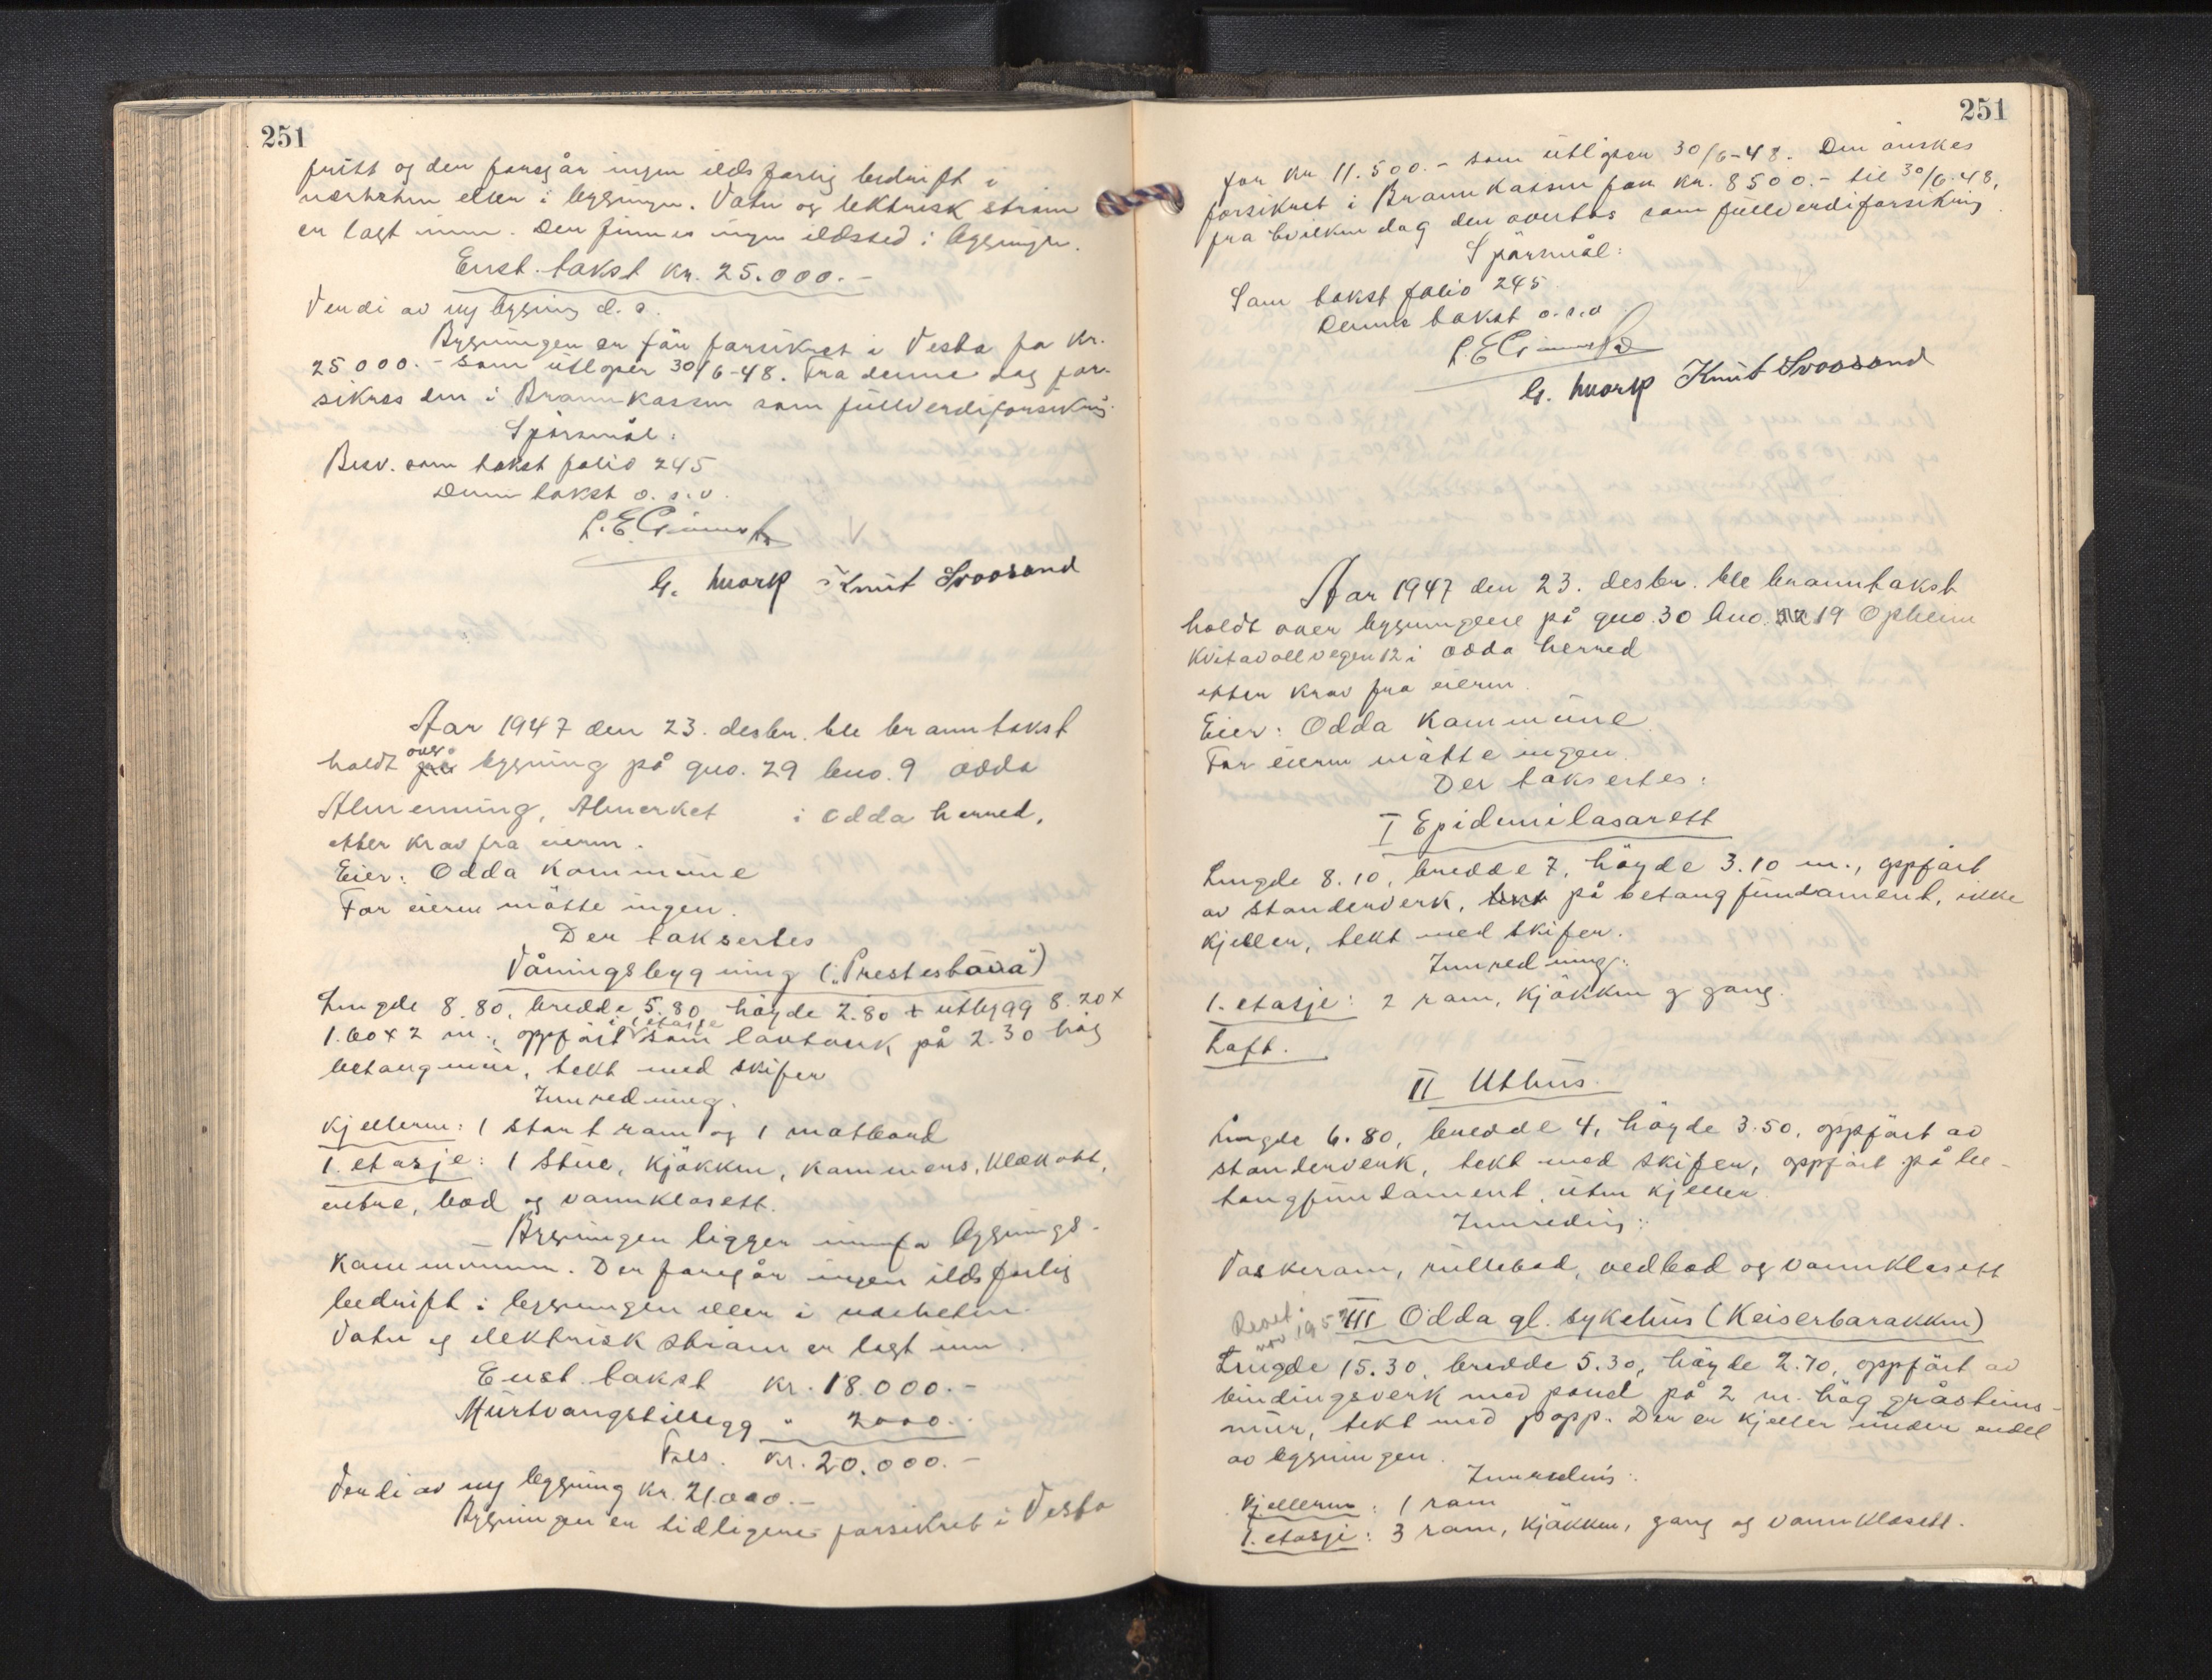 251
fritt og der foregår ingen ildsfarlig bedrift i
nærheten eller i bygningen. Vatn og lektrisk strøm
er lagt inn. Der finnes ingen ildsted i bygningen.
Enst. takst kr. 25.000.-
Verdi av ny bygning d. s.
Bygningen er før forsikret i Vesta for kr.
25000.- som utløper 30/6-48. Fra denne dag for-
sikres den i Brannkassen som fullverdiforsikring.
Spörsmål:
Besv. som takst folio 245
Denne takst o. s. v.
G. Mork Knut Svoosand
Aar 1947 den 23. desbr. ble branntakst
holdt over bygning på gno. 29 bno. 9 Odda
Almenning, Almerket i Odda herred,
etter krav fra eieren.
Eier: Odda Kommune
For eieren mötte ingen.
Der taksertes
Våningsbygning ("Prestesbåua")
Lengde 8.80, bredde 5.80, höyde 2.80 + utbygg 8.20 x
1.60 x 2 m., oppfört i 1 etasje som lavtverk på 2.30 høg
betongmur, tekt med skifer
Innredning.
Kjelleren: 1 stort rom og 1 matbod
1. etasje: 1 stue, kjökken, kammers, klækott,
entre, bod og vannklosett.
Bygningen ligger innenfor bygnings-
kommunen. Der foregår ingen ildsfarlig
bedrift i bygningen eller i nærheten.
Vatn og elektrisk ström er lagt inn.
Enst. takst kr. 18.000.-
Murtvangstillegg " 2000.-
Tils. kr. 20.000.-
Verdi av ny bygning kr. 21.000.-
Bygningen er tidligere forsikret i Vesta
251
for kr 11.500.- som utløper 30/6-48. Den önskes
forsikret i Brannkassen for kr. 8500.- til 30/6.48,
fra hvilken dag den overtas som fullverdiforsikring.
Spörsmål:
Som takst folio 245
Denne takst o.s.v
G. Mork Knut Svoosand
Aar 1947 den 23. desbr. ble branntakst
holdt over bygningene på gno. 30 bno. 19 Opheim
Kvitavollvegen 12 i Odda herred
etter krav fra eieren.
Eier: Odda Kommune
For eieren mötte ingen.
Der taksertes:
I Epidemilasarett
Lengde 8.10, bredde 7, höyde 3.10 m., oppfört
av standerverk, på betongfundament, ikke
kjeller, tekt med skifer.
Innredning:
1. etasje: 2 rom, kjökken og gang.
Loft.
II Uthus.
Lengde 6.80, bredde 4, höyde 3.50, oppfört av
standerverk, tekt med skifer, oppfört på be-
tongfundament, uten kjeller.
Innreding:
Vaskerom, rullebod, vedbod og vannklosett
Revet nov 195
III Odda gl. sykehus (Keiserbarakken)
Lengde 15.30, bredde 5.30, höyde 2.70, oppfört av
bindingsverk med panel på 2 m. høg gråsteins-
mur, tekt med papp. Der er kjeller under endel
av bygningen.
Innredning:
Kjelleren: 1 rom
1. etasje: 3 rom, kjökken, gang og vannklosett.